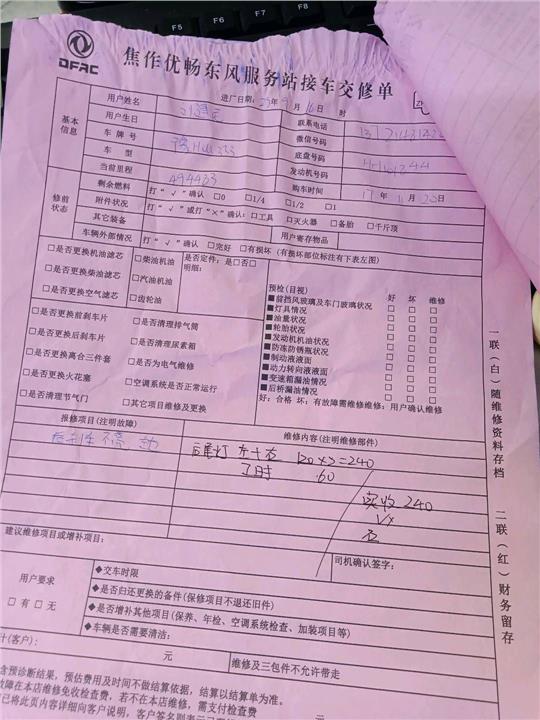 F5 F6 F7 F8
DFAC
焦作优畅东风服务站接车交修单
进厂日期: 年9月16日 时
基本信息
用户姓名
联系电话
用户生日
微信号码
车牌号
底盘号码
车型
发动机号码
当前里程 494433
购车时间 17年 月20日
修前状态
剩余燃料 打“√”确认 □0 □1/4 □1/2 □1
附件状况 打“√”或打“×”确认: □工具 □灭火器 □备胎 □千斤顶
其它装备 用户寄存物品
车辆外部情况 打“√”确认 □完好 □有损坏 (有损坏部位标注有下表左图)
□是否更换机油滤芯
□是否更换柴油滤芯
□是否更换空气滤芯
□柴油机油
□汽油机油
□齿轮油
是否定件: 是□否□
明细:
□是否更换前刹车片
□是否更换后刹车片
□是否更换离合三件套
□是否更换火花塞
□是否清理节气门
□是否清理排气筒
□是否清理尿素箱
□是否为电气维修
□空调系统是否正常运行
□其它项目维修及更换
预检(目视) 好 坏 维修
■前挡风玻璃及车门玻璃状况 □ □ □
■灯具情况 □ □ □
■油量状况 □ □ □
■轮胎状况 □ □ □
■发动机机油状况 □ □ □
■防冻防锈瓶状况 □ □ □
■制动液液面 □ □ □
■动力转向液液面 □ □ □
■变速箱漏油情况 □ □ □
■后桥漏油情况 □ □ □
好: 合格 坏: 有故障需维修维修: 用户确认维修
报修项目(注明故障)
维修内容(注明维修部件)
尾灯 左+右 120×2=240
工时 60
实收 240
建议维修项目或增补项目:
司机确认签字:
用户要求
□有 □无
◆交车时限
◆是否归还更换的备件(保修项目不退还旧件)
◆是否增补其他项目(保养、年检、空调系统检查、加装项目等)
◆车辆是否需要清洁:
计(客户): 元
维修及三包件不允许带走
含预诊断结果,预估费用及时间不做结算依据,结算以结算单为准。
故障在本店维修免收检查费,若不在本店维修,需支付检查费 元
已将此页内容详细向客户说明,客户签名则表示已
一联(白)随维修资料存档
二联(红)财务留存